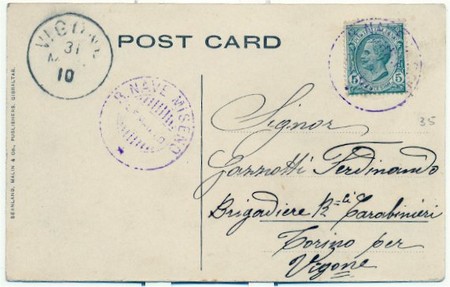 POST CARD
31
10
R. NAVE MISENO
5
35
BEANLAND, MALIN & CO., PUBLISHERS, GIBRALTAR.
Signor
Gazzotti Ferdinando
Brigadiere R.li Carabinieri
Torino per
Vigone